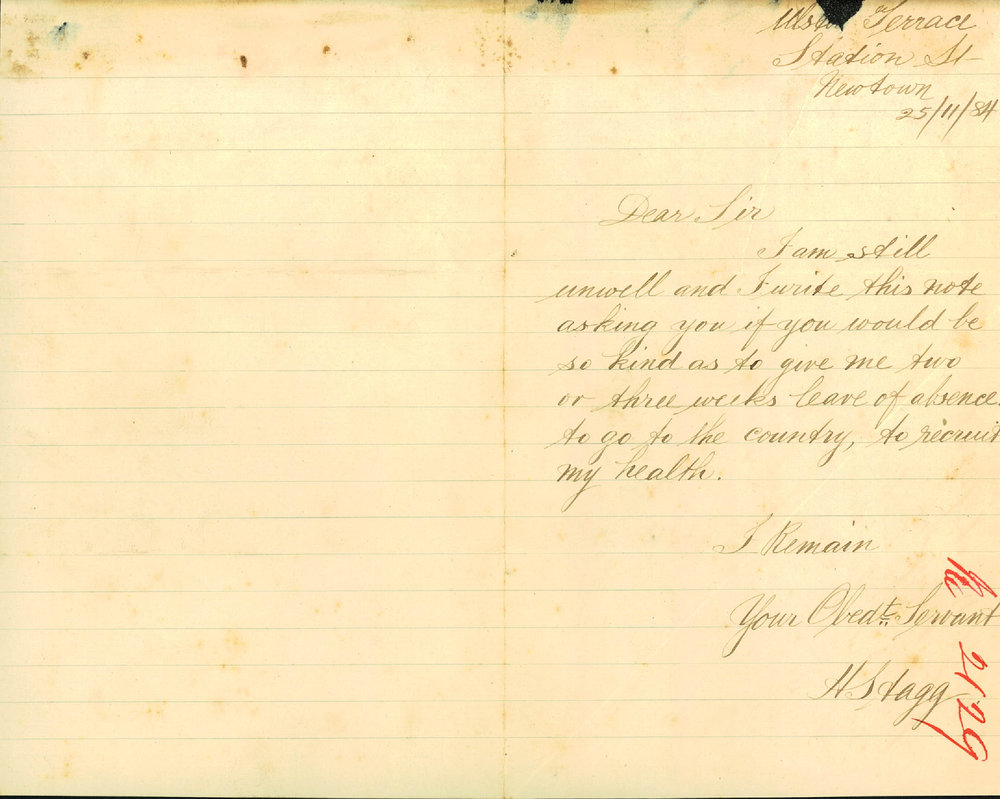 Terrace
Station St
Newtown
25/11/84
Dear Sir
I am still
unwell and I write this note
asking you if you would be
so kind as to give me two
or three weeks leave of absence.
to go to the country, to recruit
my health.
I Remain
Your Obedt. Servant
H Stagg
No 2129